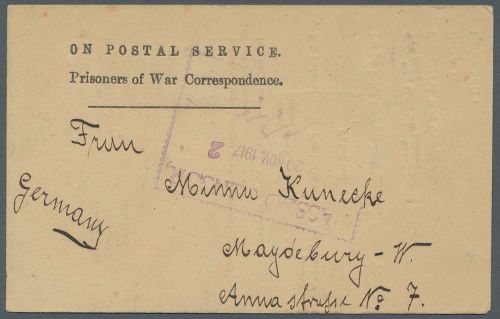 ON POSTAL SERVICE.
Prisoners of War Correspondence.
Frau
Minna Kunecke
Germany
Magdeburg - W.
Annastraße No 7.
NOV. 1917
2